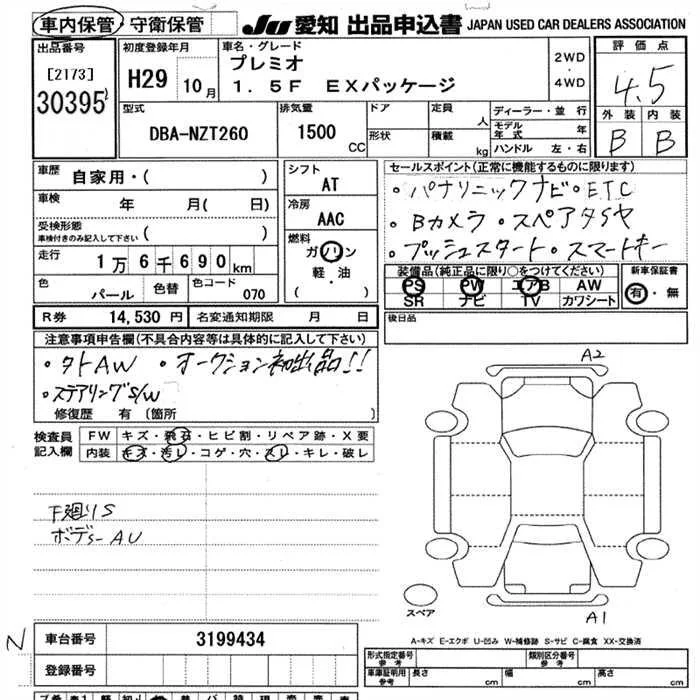 車内保管・守衛保管
JU 愛知 出品申込書 JAPAN USED CAR DEALERS ASSOCIATION
出品番号
[2173]
30395
初度登録年月
H29 10月
車名・グレード
プレミオ
1.5F EXパッケージ
2WD
・
4WD
評価点
4.5
外装 内装
B B
型式
DBA-NZT260
排気量
1500
CC
ドア
形状
定員
人
積載
kg
ディーラー・並行
モデル年式 年
ハンドル 左・右
車歴
自家用・( )
車検
年 月( 日)
受検形態
車検付きのみ記入して下さい
( )
走行
1万6千690km
色
パール
色替
色コード
070
シフト
AT
冷房
AAC
燃料
ガソリン
軽・油
( )
R券 14,530円 名変通知期限 月 日
セールスポイント(正常に機能するものに限ります)
・パナソニックナビ・ETC
・Bカメラ・スペアタSヤ
・プッシュスタート・スマートキー
装備品(純正品に限り○をつけてください)
PS PW エアB AW
SR ナビ TV カワシート
新車保証書
有・無
後日品
注意事項申告欄(不具合内容等は具体的に記入して下さい)
・タトAW ・オークション初出品!!
・ステアリングS/W
修復歴 有 〔箇所
検査員
記入欄
FW キズ・飛石・ヒビ割・リペア跡・X要
内装 キズ・汚レ・コゲ・穴・スレ・キレ・破レ
下廻りS
ボデSーAU
A2
A1
スペア
N
車台番号 3199434
登録番号
A-キズ E-エクボ U-凹み W-補修跡 S-サビ C-腐食 XX-交換済
形式指定番号
参考
類別区分番号
参考
車庫証明用
参考
長さ cm 幅 cm 高さ cm